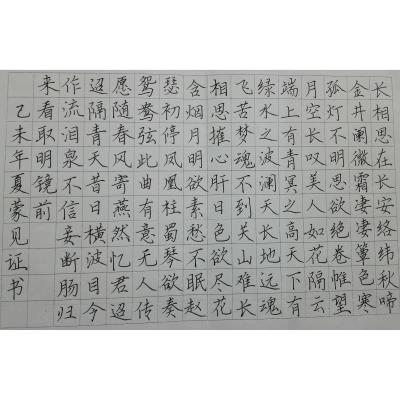 长相思在长安络纬秋啼
金井阑微霜凄凄簟色寒
孤灯不明思欲绝卷帷望
月空长叹美人如花隔云
端上有青冥之高天下有
绿水之波澜天长地远魂
飞苦梦魂不到关山难长
相思摧心肝日色欲尽花
含烟月明欲素愁不眠赵
瑟初停凤凰柱蜀琴欲奏
鸳鸯弦此曲有意无人传
愿随春风寄燕然忆君迢
迢隔青天昔日横波目今
作流泪泉不信妾断肠归
来看取明镜前
乙未年夏蒙见证书